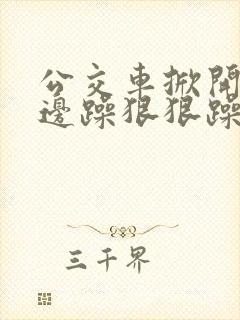 公交車掀開
邊躁狠狠躁
三千界